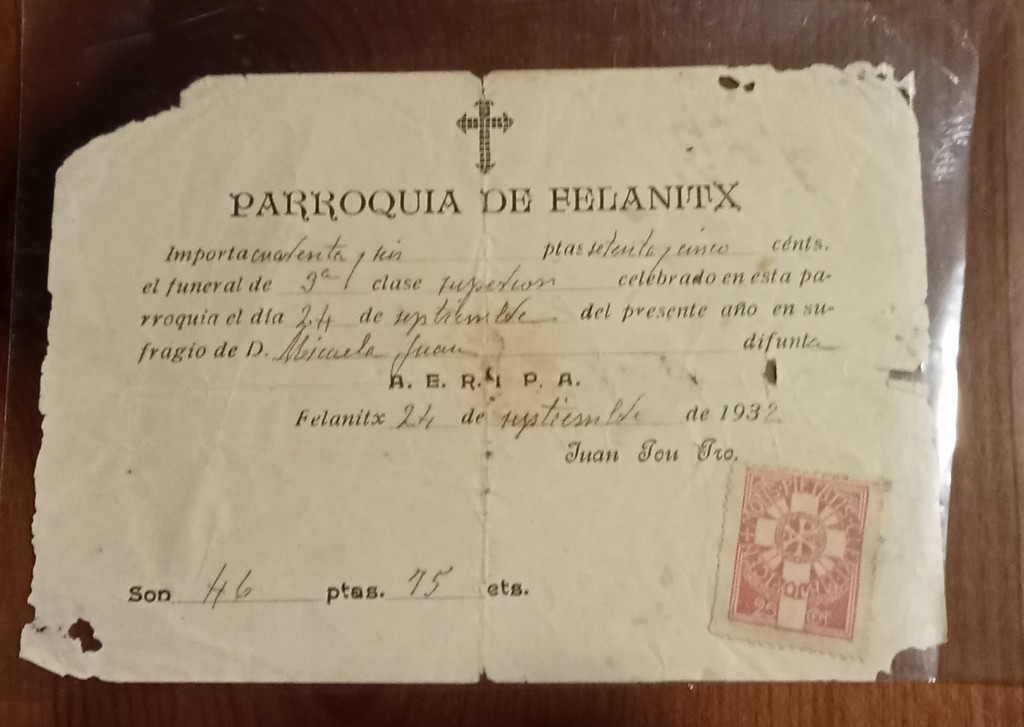 PARROQUIA DE FELANITX
Importa cuarenta y seis ptas setenta y cinco cénts.
el funeral de 3ª clase superior celebrado en esta pa-
rroquia el día 24 de septiembre del presente año en su-
fragio de D. Micaela Juan difunta
A. E. R. I P. A.
Felanitx 24 de septiembre de 1932
Juan Tou Tro.
Son 46 ptas. 75 cts.